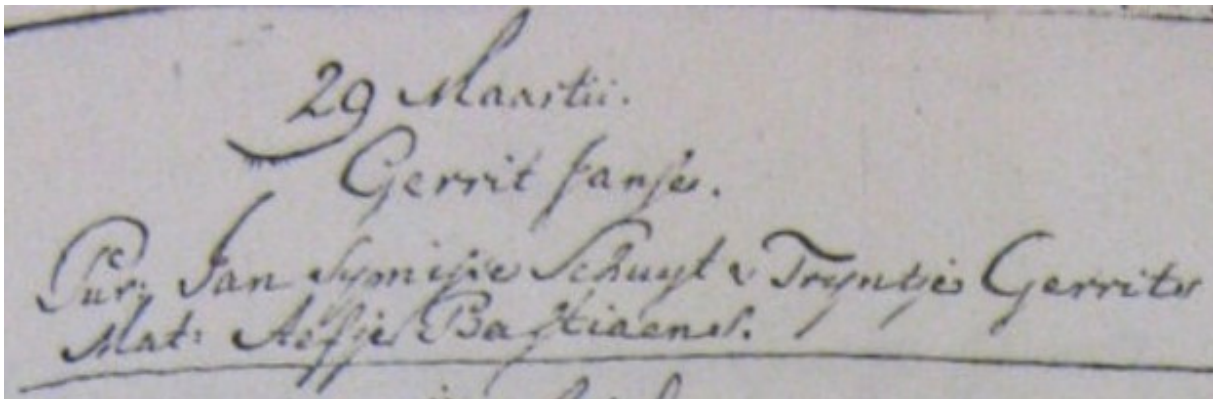 29 Maartii.
Gerrit Janses.
Par: Jan Symisse Schuyt & Tryntje Gerrits
Mat: Aefje Bastiaens.